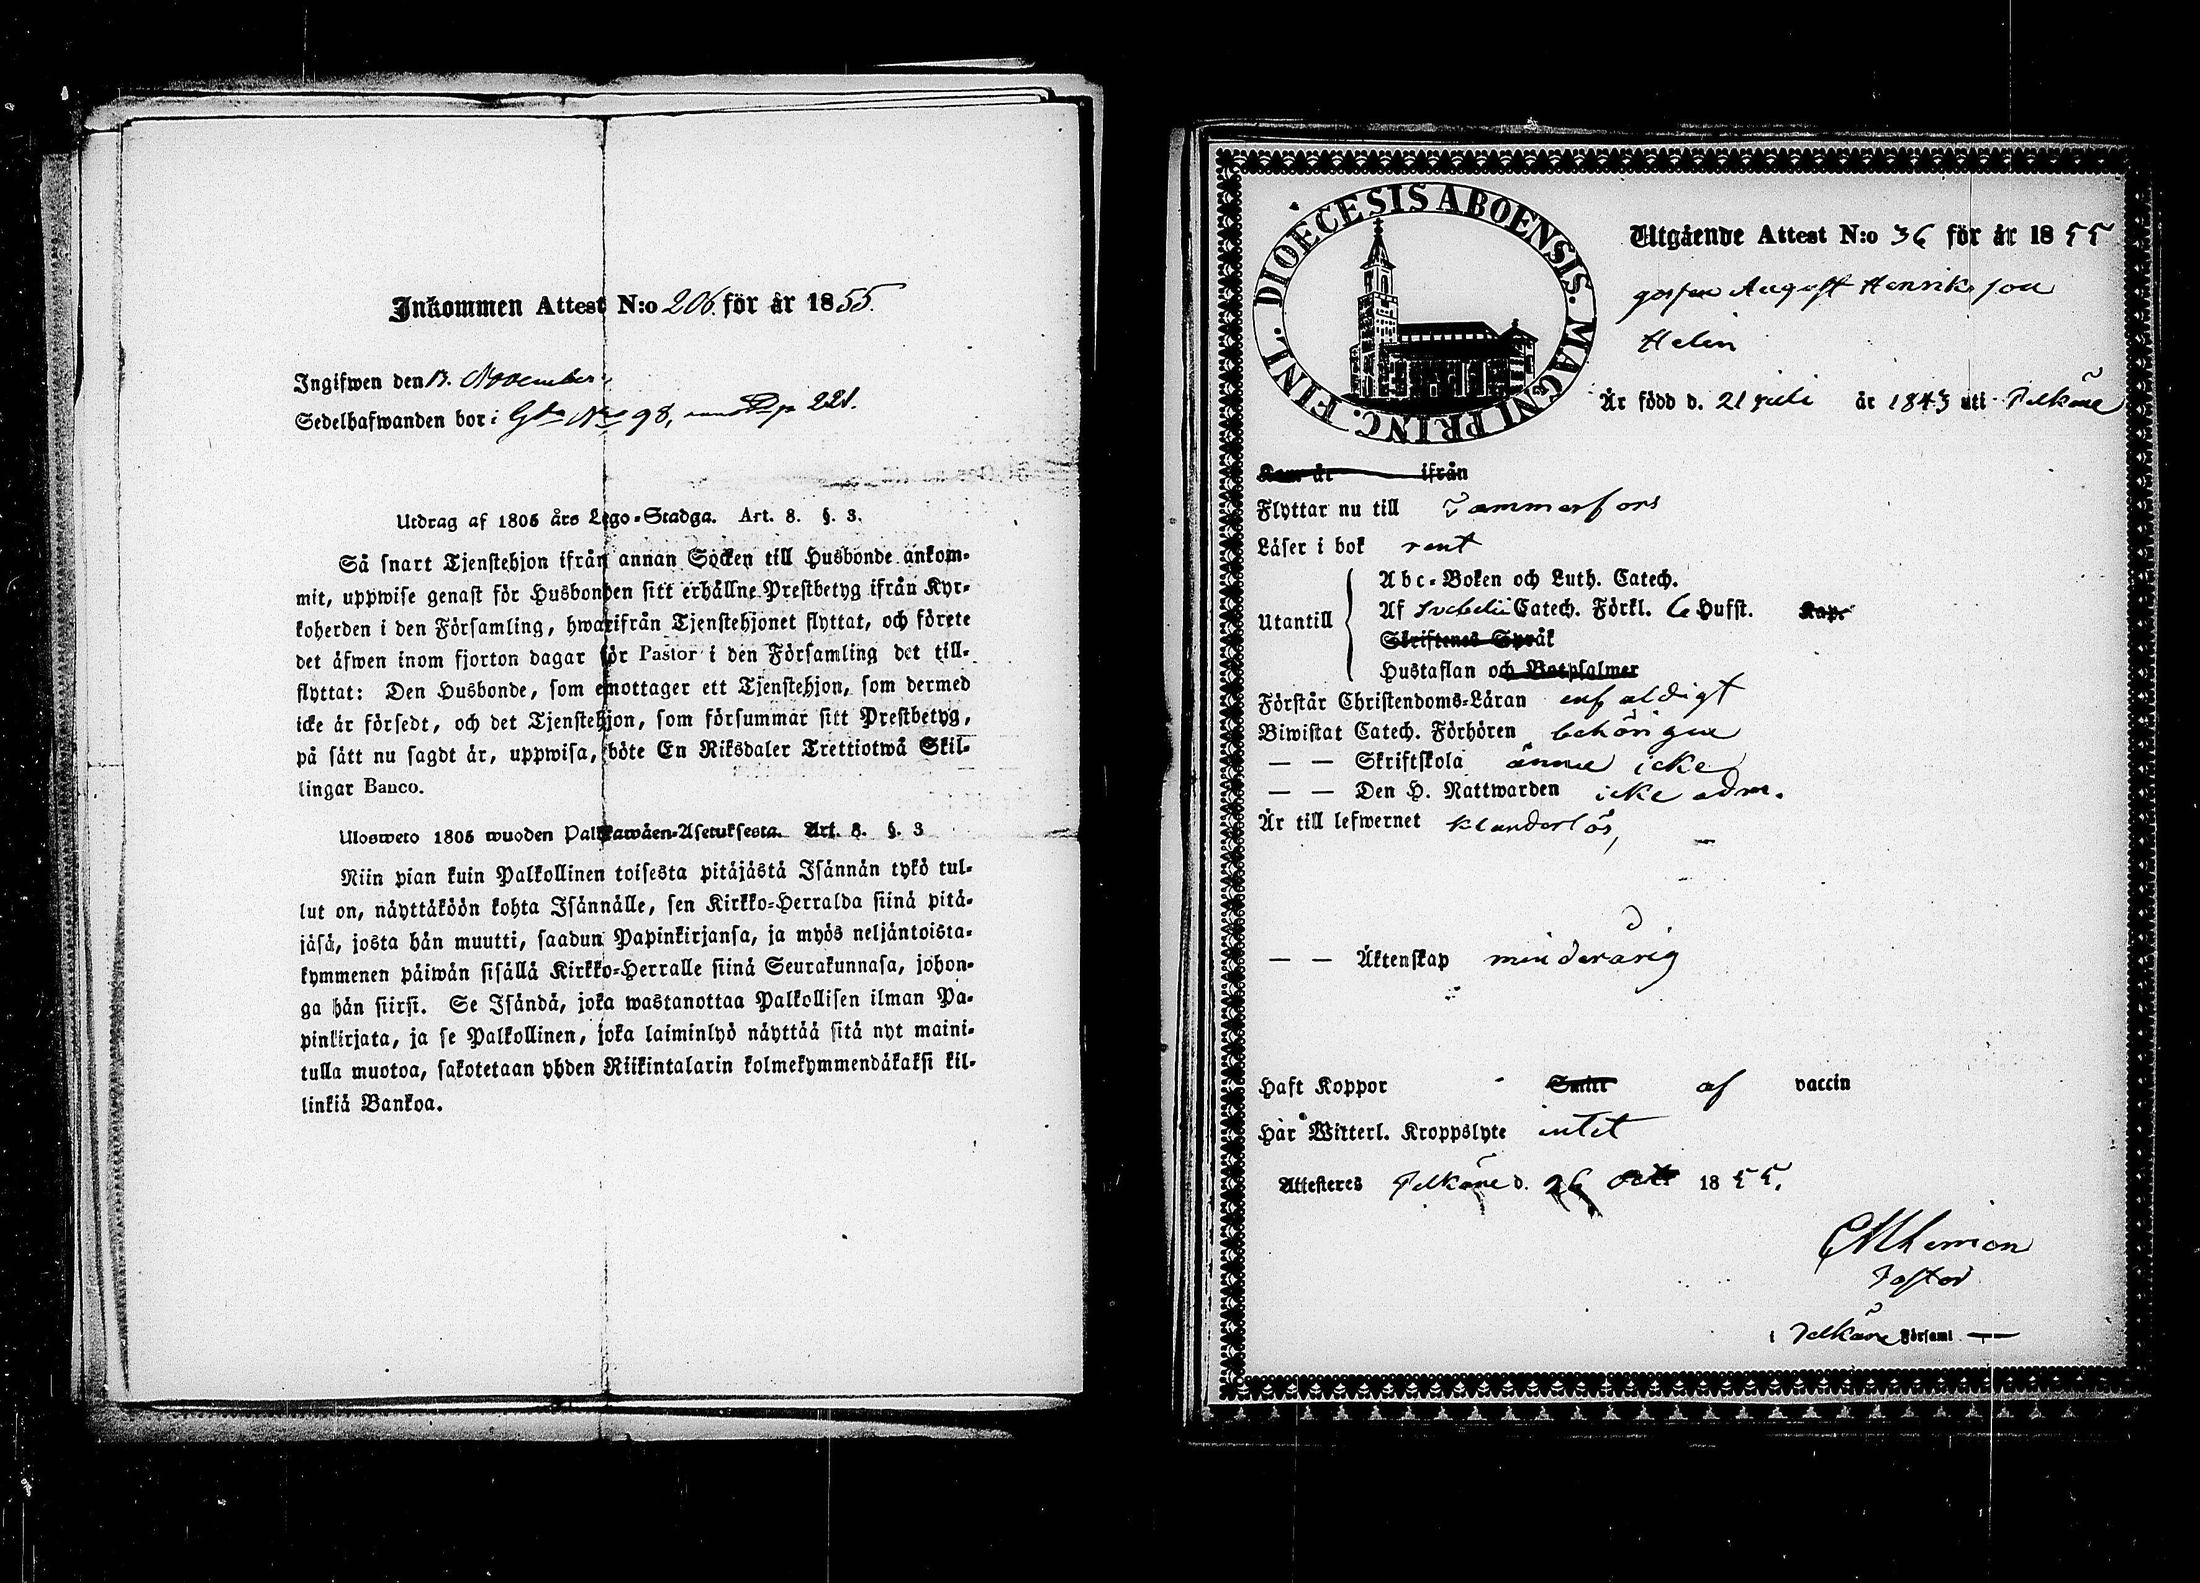 Inkommen Attest N:o 206. för år 1855.
Ingifwen den 13. November
Sedelhafwanden bor i Gda No 98, p 221.
Utdrag af 1805 års Lego-Stadga. Art. 8. §. 3.
Så snart Tjenstehjon ifrån annan Socken till Husbonde ankom-
mit, uppwise genast för Husbonden sitt erhållne Prestbetyg ifrån Kyr-
koherden i den Församling, hwarifrån Tjenstehjonet flyttat, och förete
det äfwen inom fjorton dagar för Pastor i den Församling det till-
flyttat: Den Husbonde, som emottager ett Tjenstehjon, som dermed
icke är försedt, och det Tjenstehjon, som försummar sitt Prestbetyg,
på sätt nu sagdt är, uppwisa, böte En Riksdaler Trettiotwå Skil-
lingar Banco.
Ulosweto 1805 wuoden Palkawäen-Asetuksesta. Art. 8. §. 3
Niin pian kuin Palkollinen toisesta pitäjästä Isännän tykö tul-
lut on, näyttäköön kohta Isännälle, sen Kirkko-Herralda siinä pitä-
jäsä, josta hän muutti, saadun Papinkirjansa, ja myös neljäntoista-
kymmenen päiwän sisällä Kirkko-Herralle siinä Seurakunnasa, johon-
ga hän siirsi. Se Isändä, joka wastanottaa Palkollisen ilman Pa-
pinkirjata, ja se Palkollinen, joka laiminlyö näyttää sitä nyt maini-
tulla muotoa, sakotetaan yhden Riikintalarin kolmekymmendäkaksi kil-
linkiä Bankoa.
DIOECESIS ABOENSIS. MAGNI PRINC. FINL.
Utgående Attest N:o 36 för år 1855
gossen August Henriksson
Helin
Är född d. 21 juli år 1843 uti Pelkäne
Kom år ifrån
Flyttar nu till Tammerfors
Läser i bok rent
Utantill
Abc-Boken och Luth. Catech.
Af Svebelii Catech. Förkl. 6 Hufst. Kap.
Skriftenes Språk
Hustaflan och Botpsalmer
Förstår Christendoms-Läran enfaldigt
Biwistat Catech. Förhören behörigen
— — Skriftskola ännu icke
— — Den H. Nattwarden icke adm.
Är till lefwernet klanderlös,
— — Äktenskap minderårig
Haft Koppor Smitt af vaccin
Har Witterl. Kroppslyte intet
Attesteres Pelkäne d. 26 Oct 1855.
Pastor
i Pelkäne Församl